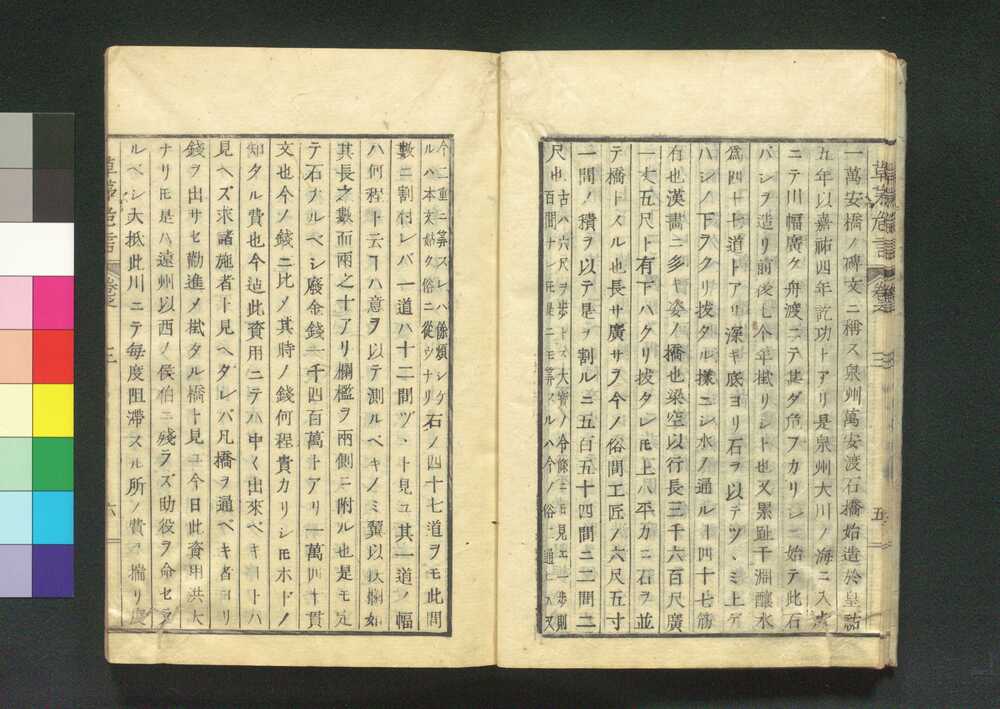 一萬安橋ノ碑文ニ稱ス泉州萬安渡石橋始造於皇祐
五年以嘉祐四年訖功トアリ是泉州大川ノ海ニ入
ニテ川幅廣ク舟渡ニテ甚ダ危フカリシニ始テ此石
バシヲ造リ前後七个年掛リシト也又累趾于淵釃水
爲四十七道トアリ深キ底ヨリ石ヲ以テツヽミ上ゲ
ハシノ下ヲクリ拔タル樣ニシ水ノ通ルヿ四十七筋
有也漢畵ニ多キ姿ノ橋也梁空以行長三千六百尺廣
一丈五尺ト有下ハクリ拔タレ𪜈上ハ平カニ石ヲ並
テ橋トスル也長サ廣サヲ今ノ俗間工匠ノ六尺五寸
一間ノ積ヲ以テ是ヲ割ルニ五百五十四間ニ二間二
尺也
古ハ六尺ヲ歩トス大寶ノ令條ニモ見エ一歩則
一間ナレ𪜈是ニテ算スルハ今ノ俗ニ通ヒス
今二重ニ算スレハ係煩シケ
ルハ本末姑ク俗ニ從ウナリ
石ノ四十七道ヲモ此間
數ニ割付レバ一道ハ十二間ヅヽト見ユ其一道ノ幅
ハ何程ト云ヿハ意ヲ以テ測ルベキノミ翼以扶欄如
其長之數而兩之トアリ欄檻ヲ兩側ニ附ル也是モ定
テ石ナルベシ廢金錢一千四百萬トアリ一萬四千貫
文也今ノ錢ニ比メ其時ノ錢何程貴カリシ𪜈ホドノ
知タル費也今迚此資用ニテハ中〱出來ベキヿトハ
見ヘズ求諸施者ト見ヘタレバ凡橋ヲ通ベキ者ヨリ
錢ヲ出サセ勸進メ掛タル橋ト見ユ今日此資用洪大
ナリ𪜈是ハ遠州以西ノ侯伯ニ殘ラズ助役ヲ命セラ
ルベシ大抵此川ニテ每度阻滯スル所ノ費ヲ揣リ度
草茅危言
三
五
六